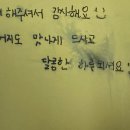 해주셔서 감사해요 :)
맛나게 드시고
달콤한 하루 되세요